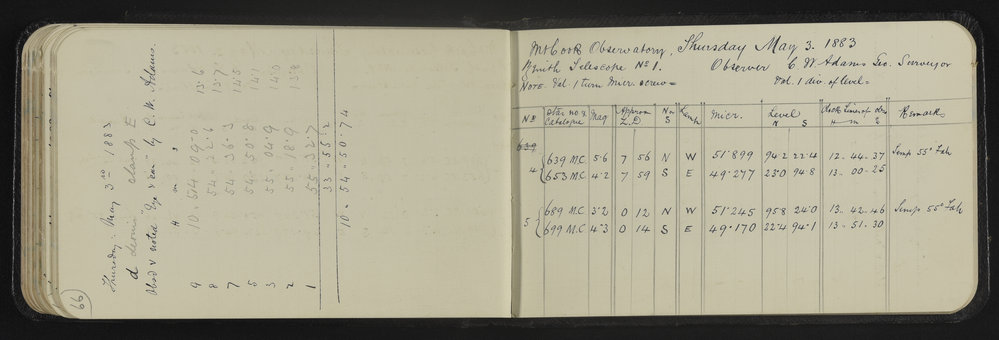 66
Thursday. May 3rd 1883
clamp E
Obsd & noted "Eye & ear" by C. W. Adams.
H m s
9 10.54 09.0 13.6
8 54.22.6 13.7
7 54.36.3 14.5
5 54.50.8 14.1
3 55.04.9 14.0
2 55.18.9 13.8
1 55.32.7
33.55.2
10.54.50.74
Mt Cook Observatory, Thursday May 3. 1883
Zenith Telescope No 1. Observer C W Adams Geo. Surveyor
Note. Val. 1 turn Micr. screw = Val. 1 div. of level =
No Star no & Catalogue Mag Approx Z.D N or S Lamp Micr. Level N S Clock Times of obs H m S Remarks
639
4 639 M.C. 5.6 7 56 N W 51.899 94.2 22.4 12.44.37 Temp 55° Fah
653 M.C. 4.2 7 59 S E 49.277 23.0 94.8 13.00.25
5 689 M.C 3.2 0 12 N W 51.245 95.8 24.0 13.42.46 Temp 55° Fah
699 M.C. 4.3 0 14 S E 49.170 22.4 94.1 13.51.30